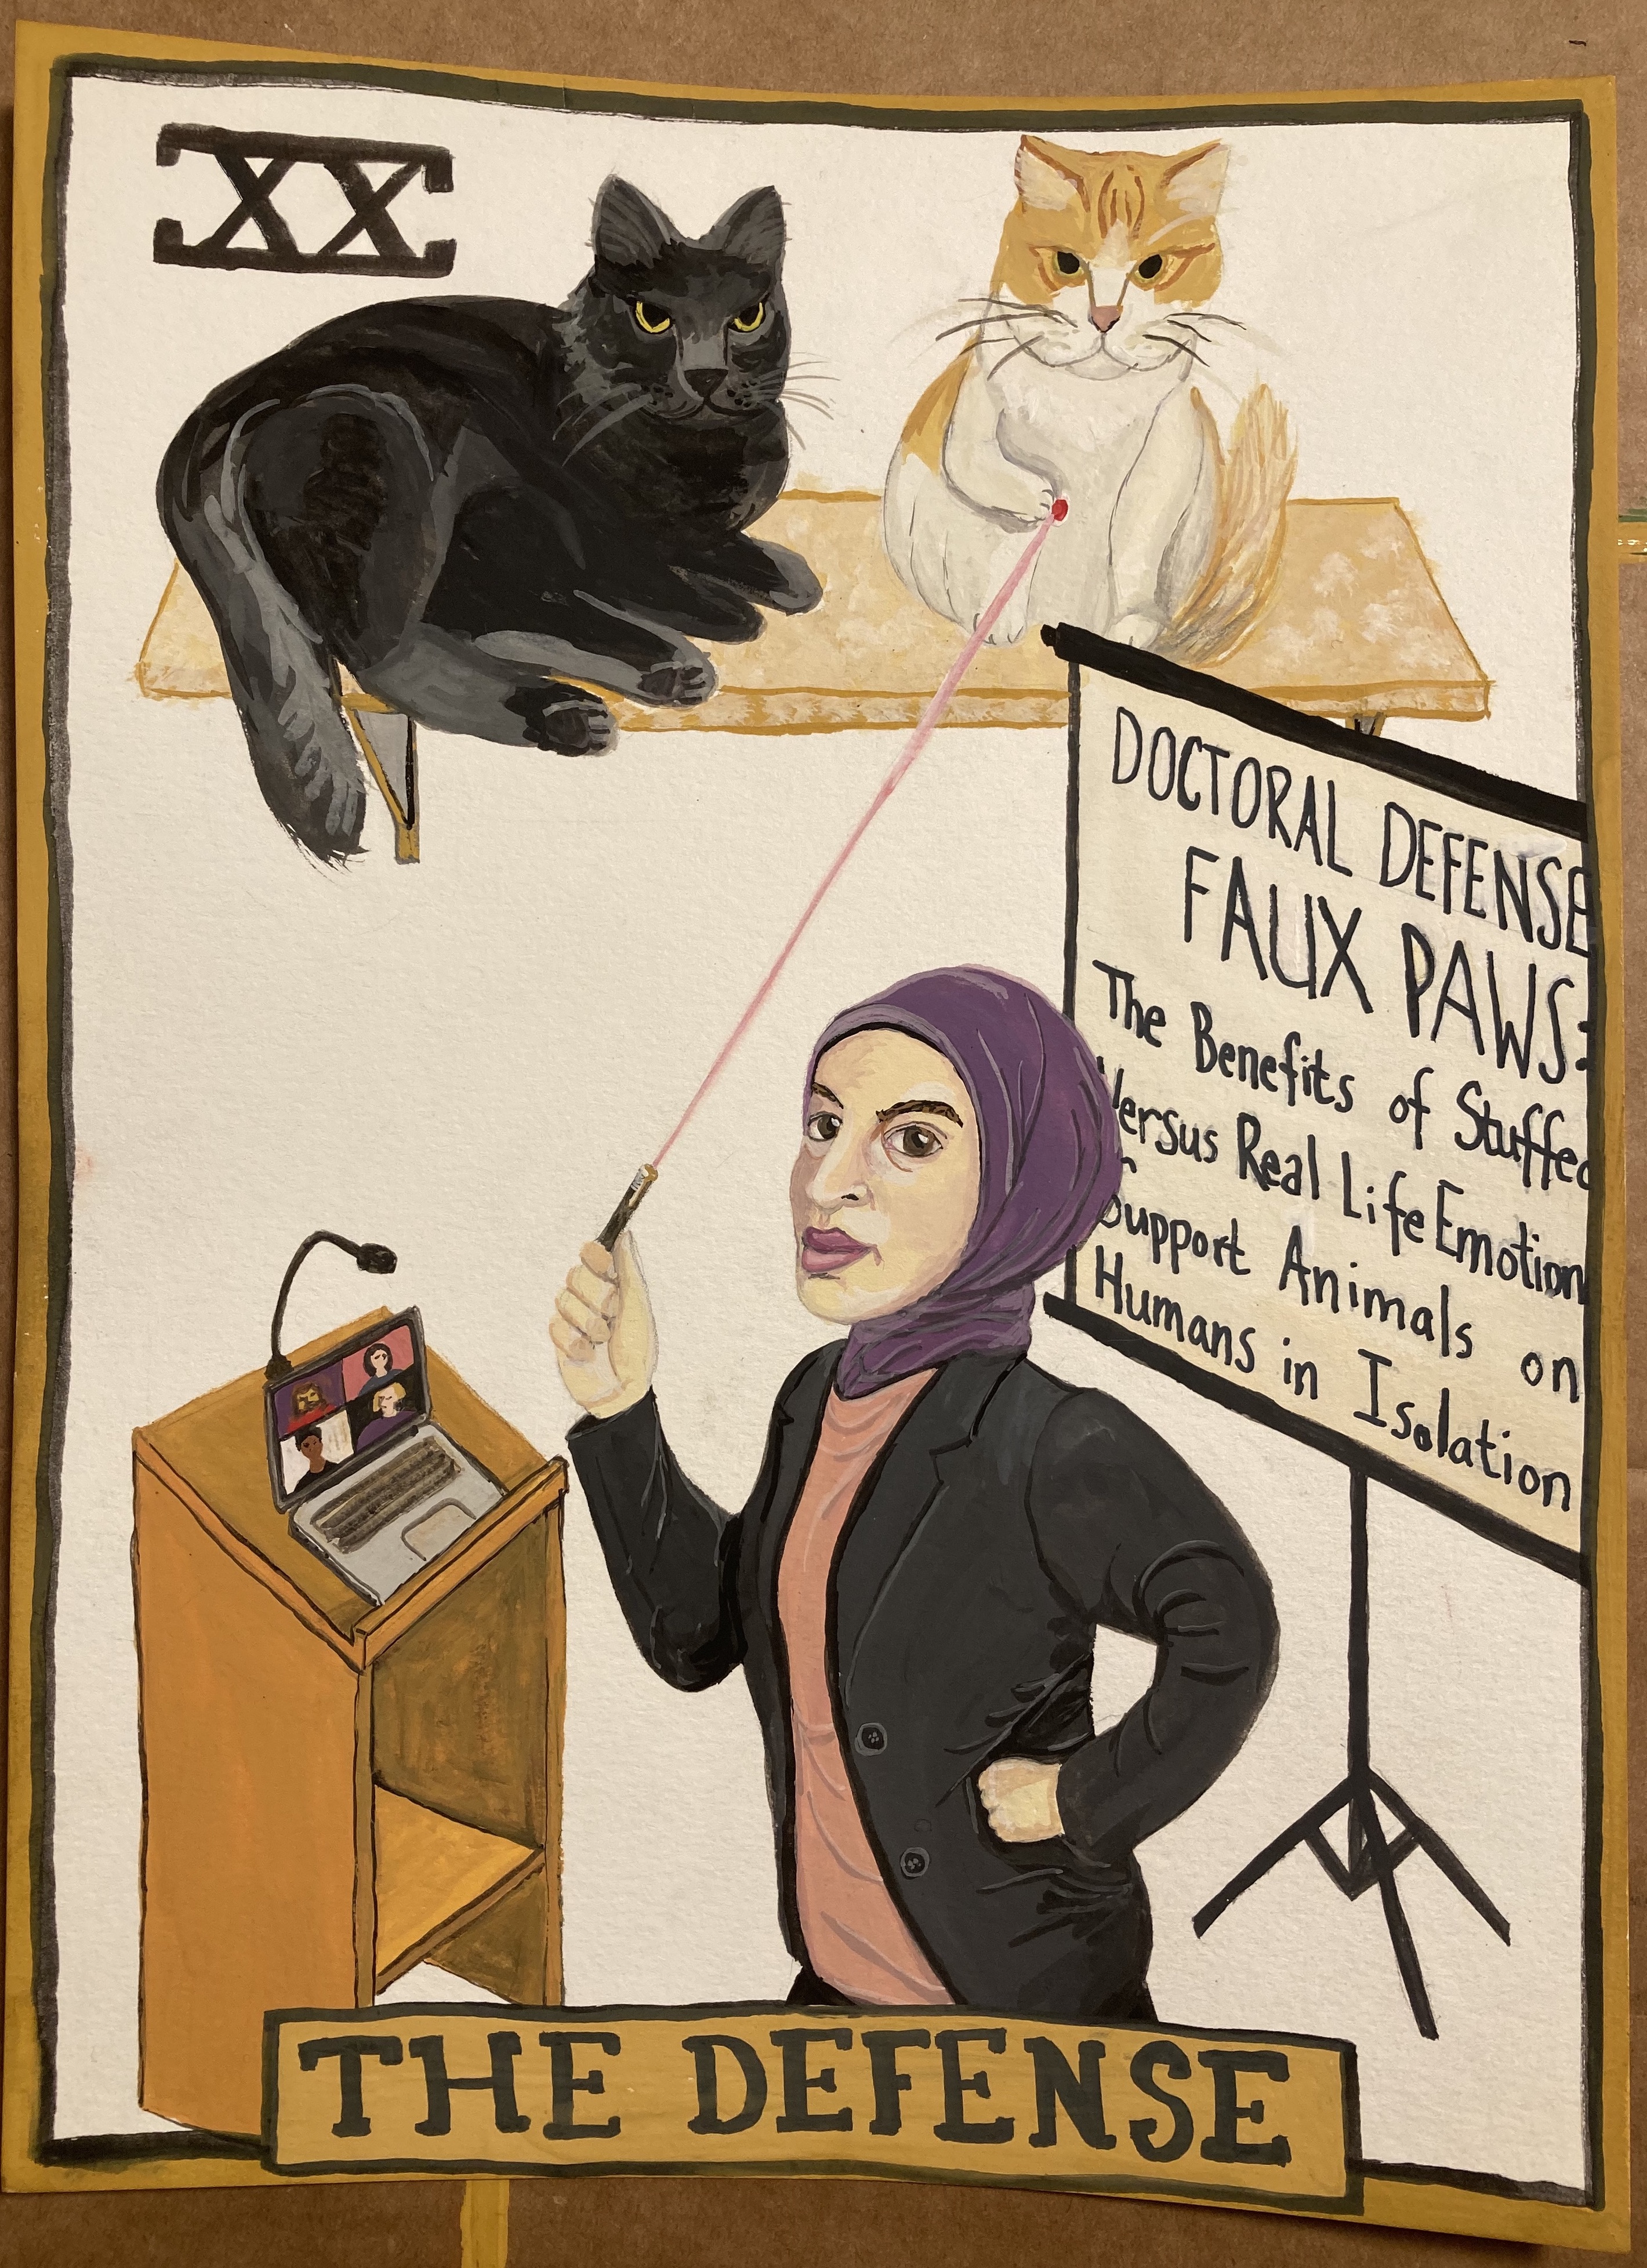 XX
DOCTORAL DEFENSE
FAUX PAWS:
The Benefits of Stuffed
Versus Real Life Emotion
Support Animals on
Humans in Isolation
THE DEFENSE